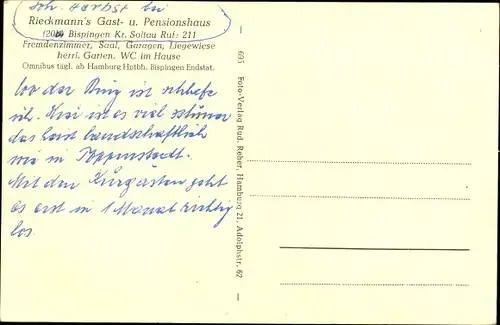 Joh. Herbst bei
Rieckmann's Gast- u. Pensionshaus
(20a) Bispingen Kr. Soltau Ruf: 211
Fremdenzimmer, Saal, Garagen, Liegewiese
herrl. Garten. WC im Hause
Omnibus tägl. ab Hamburg Hptbh. Bispingen Endstat.
wo der Ring ist schlafe
ich. Hier ist es viel schöner
das heist landschaftlich
wie in Toppenstedt.
Mit den Kurgästen geht
es erst in 1 Monat richtig
los.
695 Foto-Verlag Rud. Reher, Hamburg 21, Adolphstr. 62